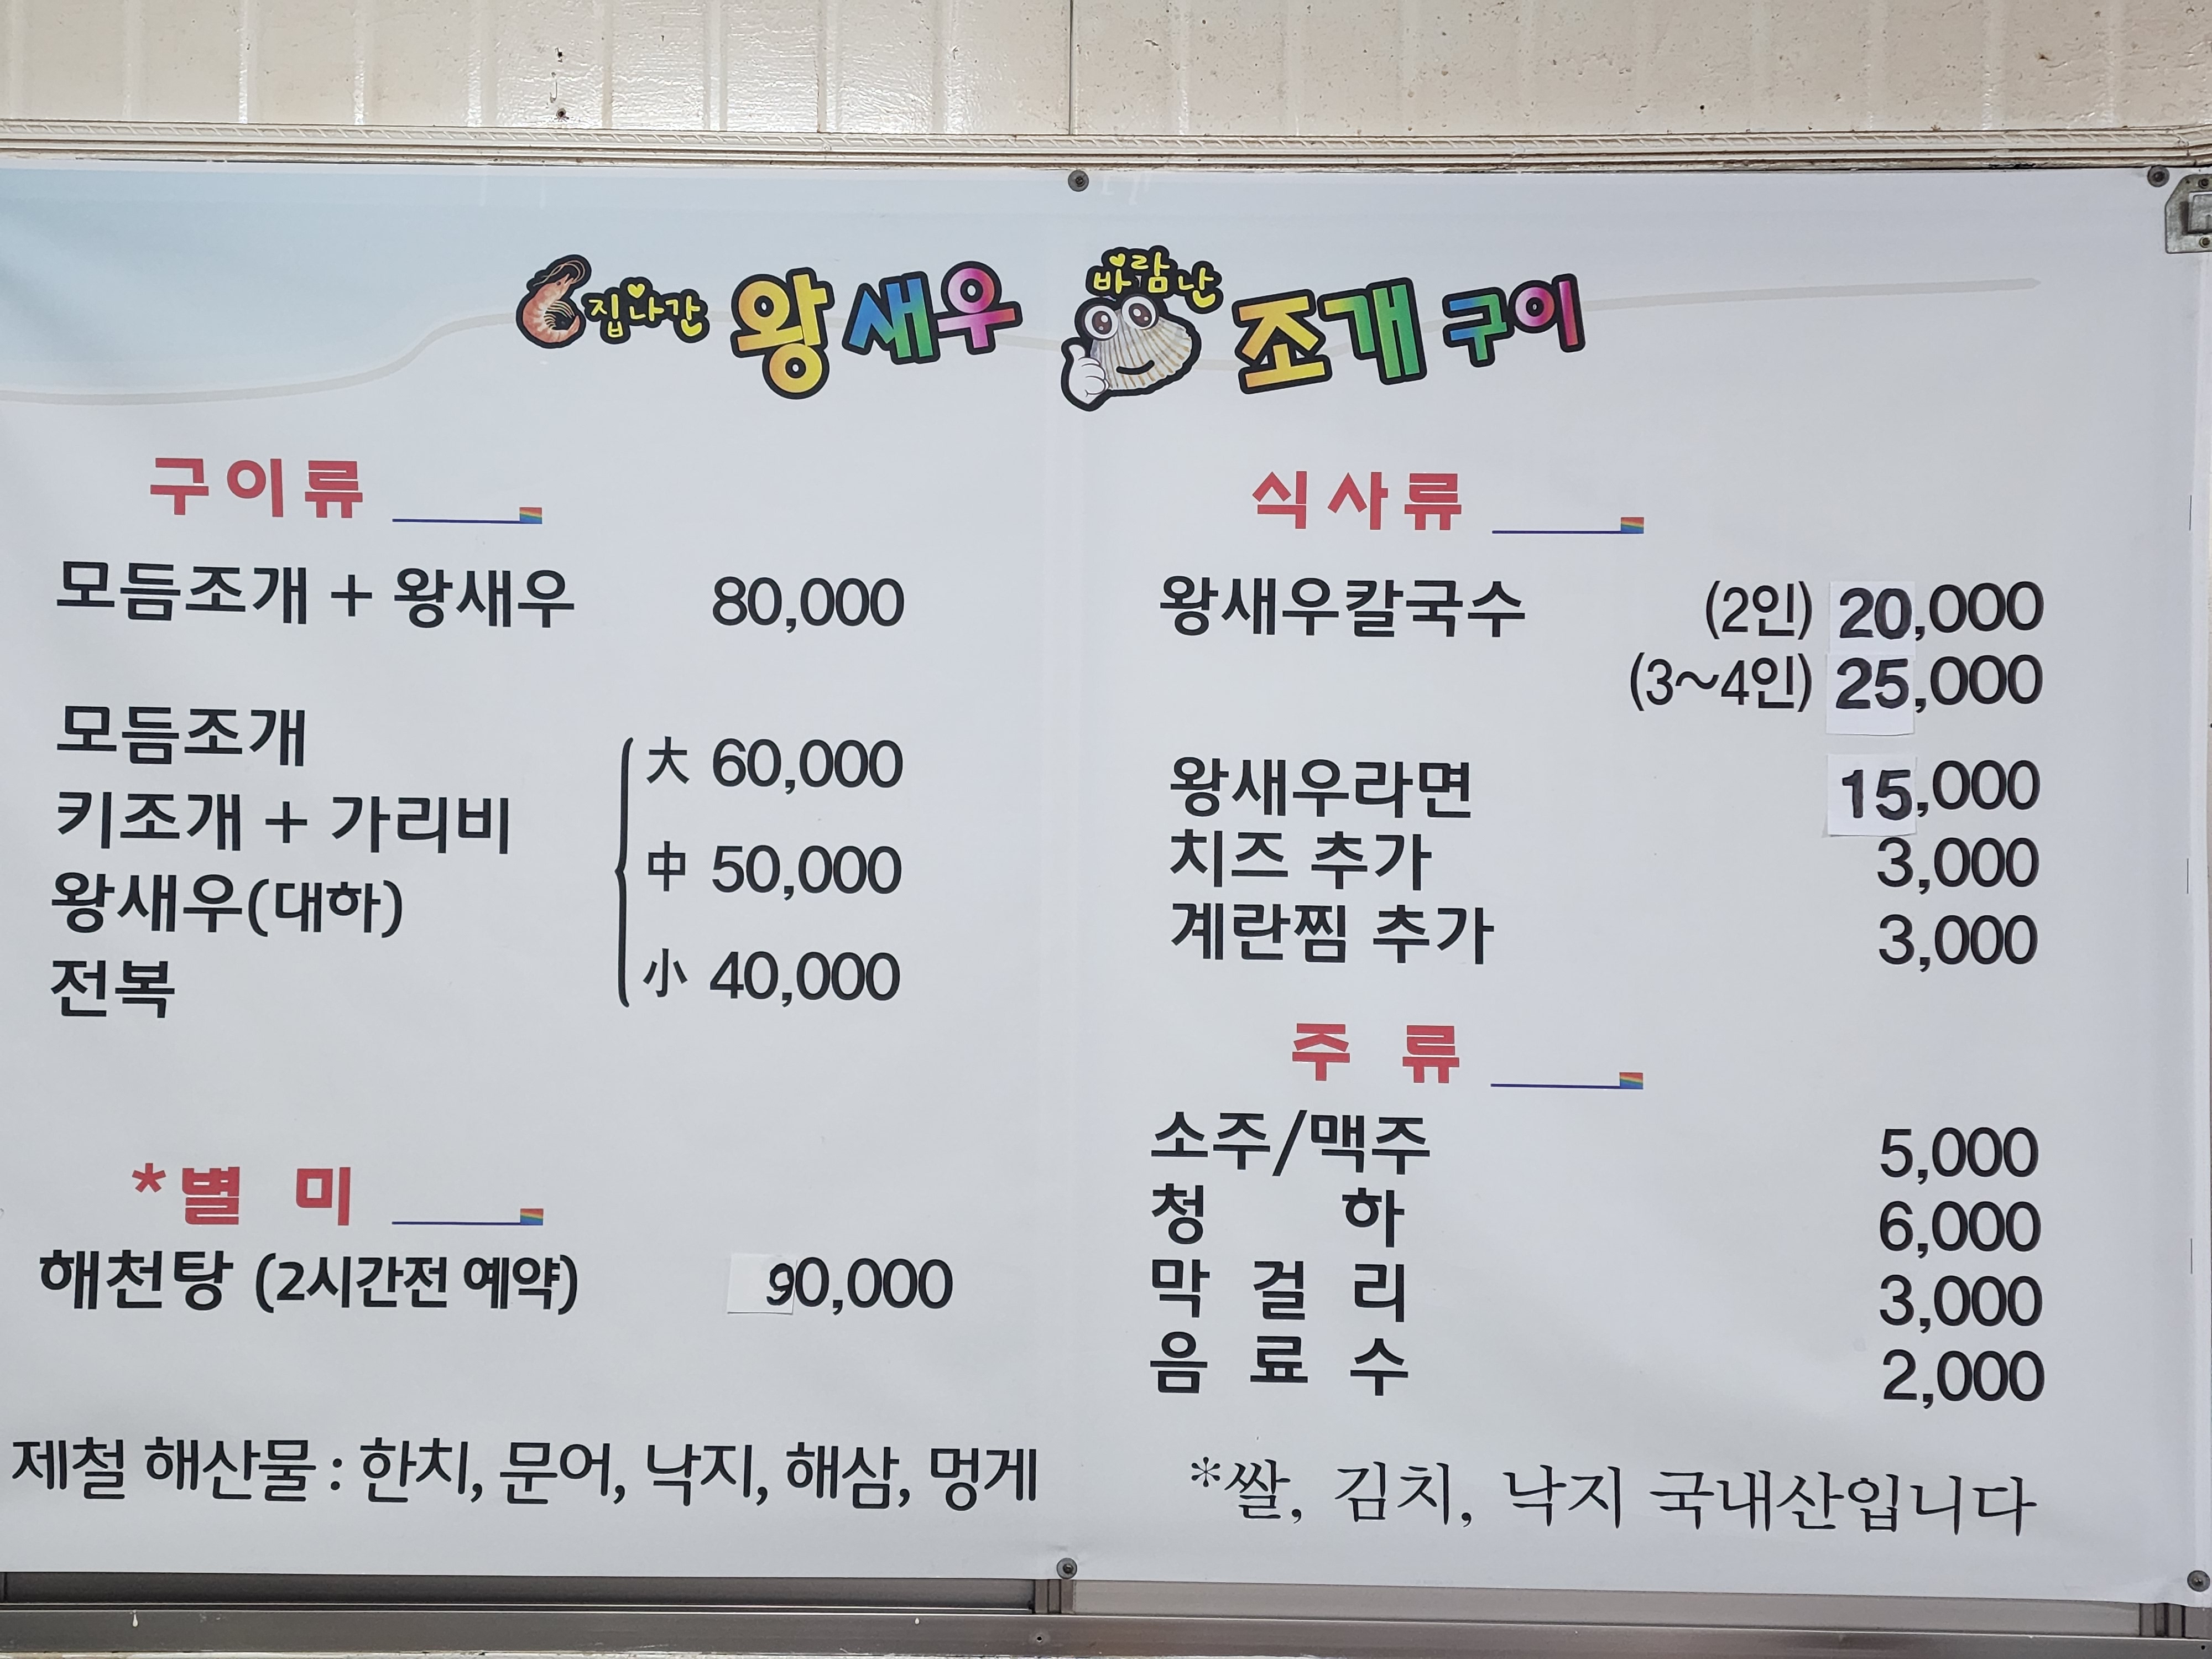 집나간 왕새우 바람난 조개구이
구이류
모듬조개 + 왕새우 80,000
모듬조개
키조개 + 가리비
왕새우(대하)
전복
大 60,000
中 50,000
小 40,000
*별 미
해천탕 (2시간전 예약) 90,000
제철 해산물 : 한치, 문어, 낙지, 해삼, 멍게
식사류
왕새우칼국수 (2인) 20,000
(3~4인) 25,000
왕새우라면 15,000
치즈 추가 3,000
계란찜 추가 3,000
주 류
소주/맥주 5,000
청 하 6,000
막 걸 리 3,000
음 료 수 2,000
*쌀, 김치, 낙지 국내산입니다